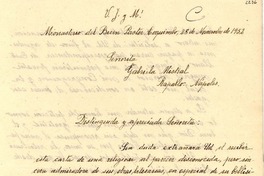 V. J. y Mª
C
Monasterio del Buen Pastor, Coquimbo, 28 de Septiembre de 1952
Señorita
Gabriela Mistral
Rapallo, Nápoles.
Distinguida y apreciada Señorita:
Sin duda extrañará Ud. el recibir
esta carta de una religiosa al parecer desconocida, pero sin-
cera admiradora de sus obras literarias, en especial de sus